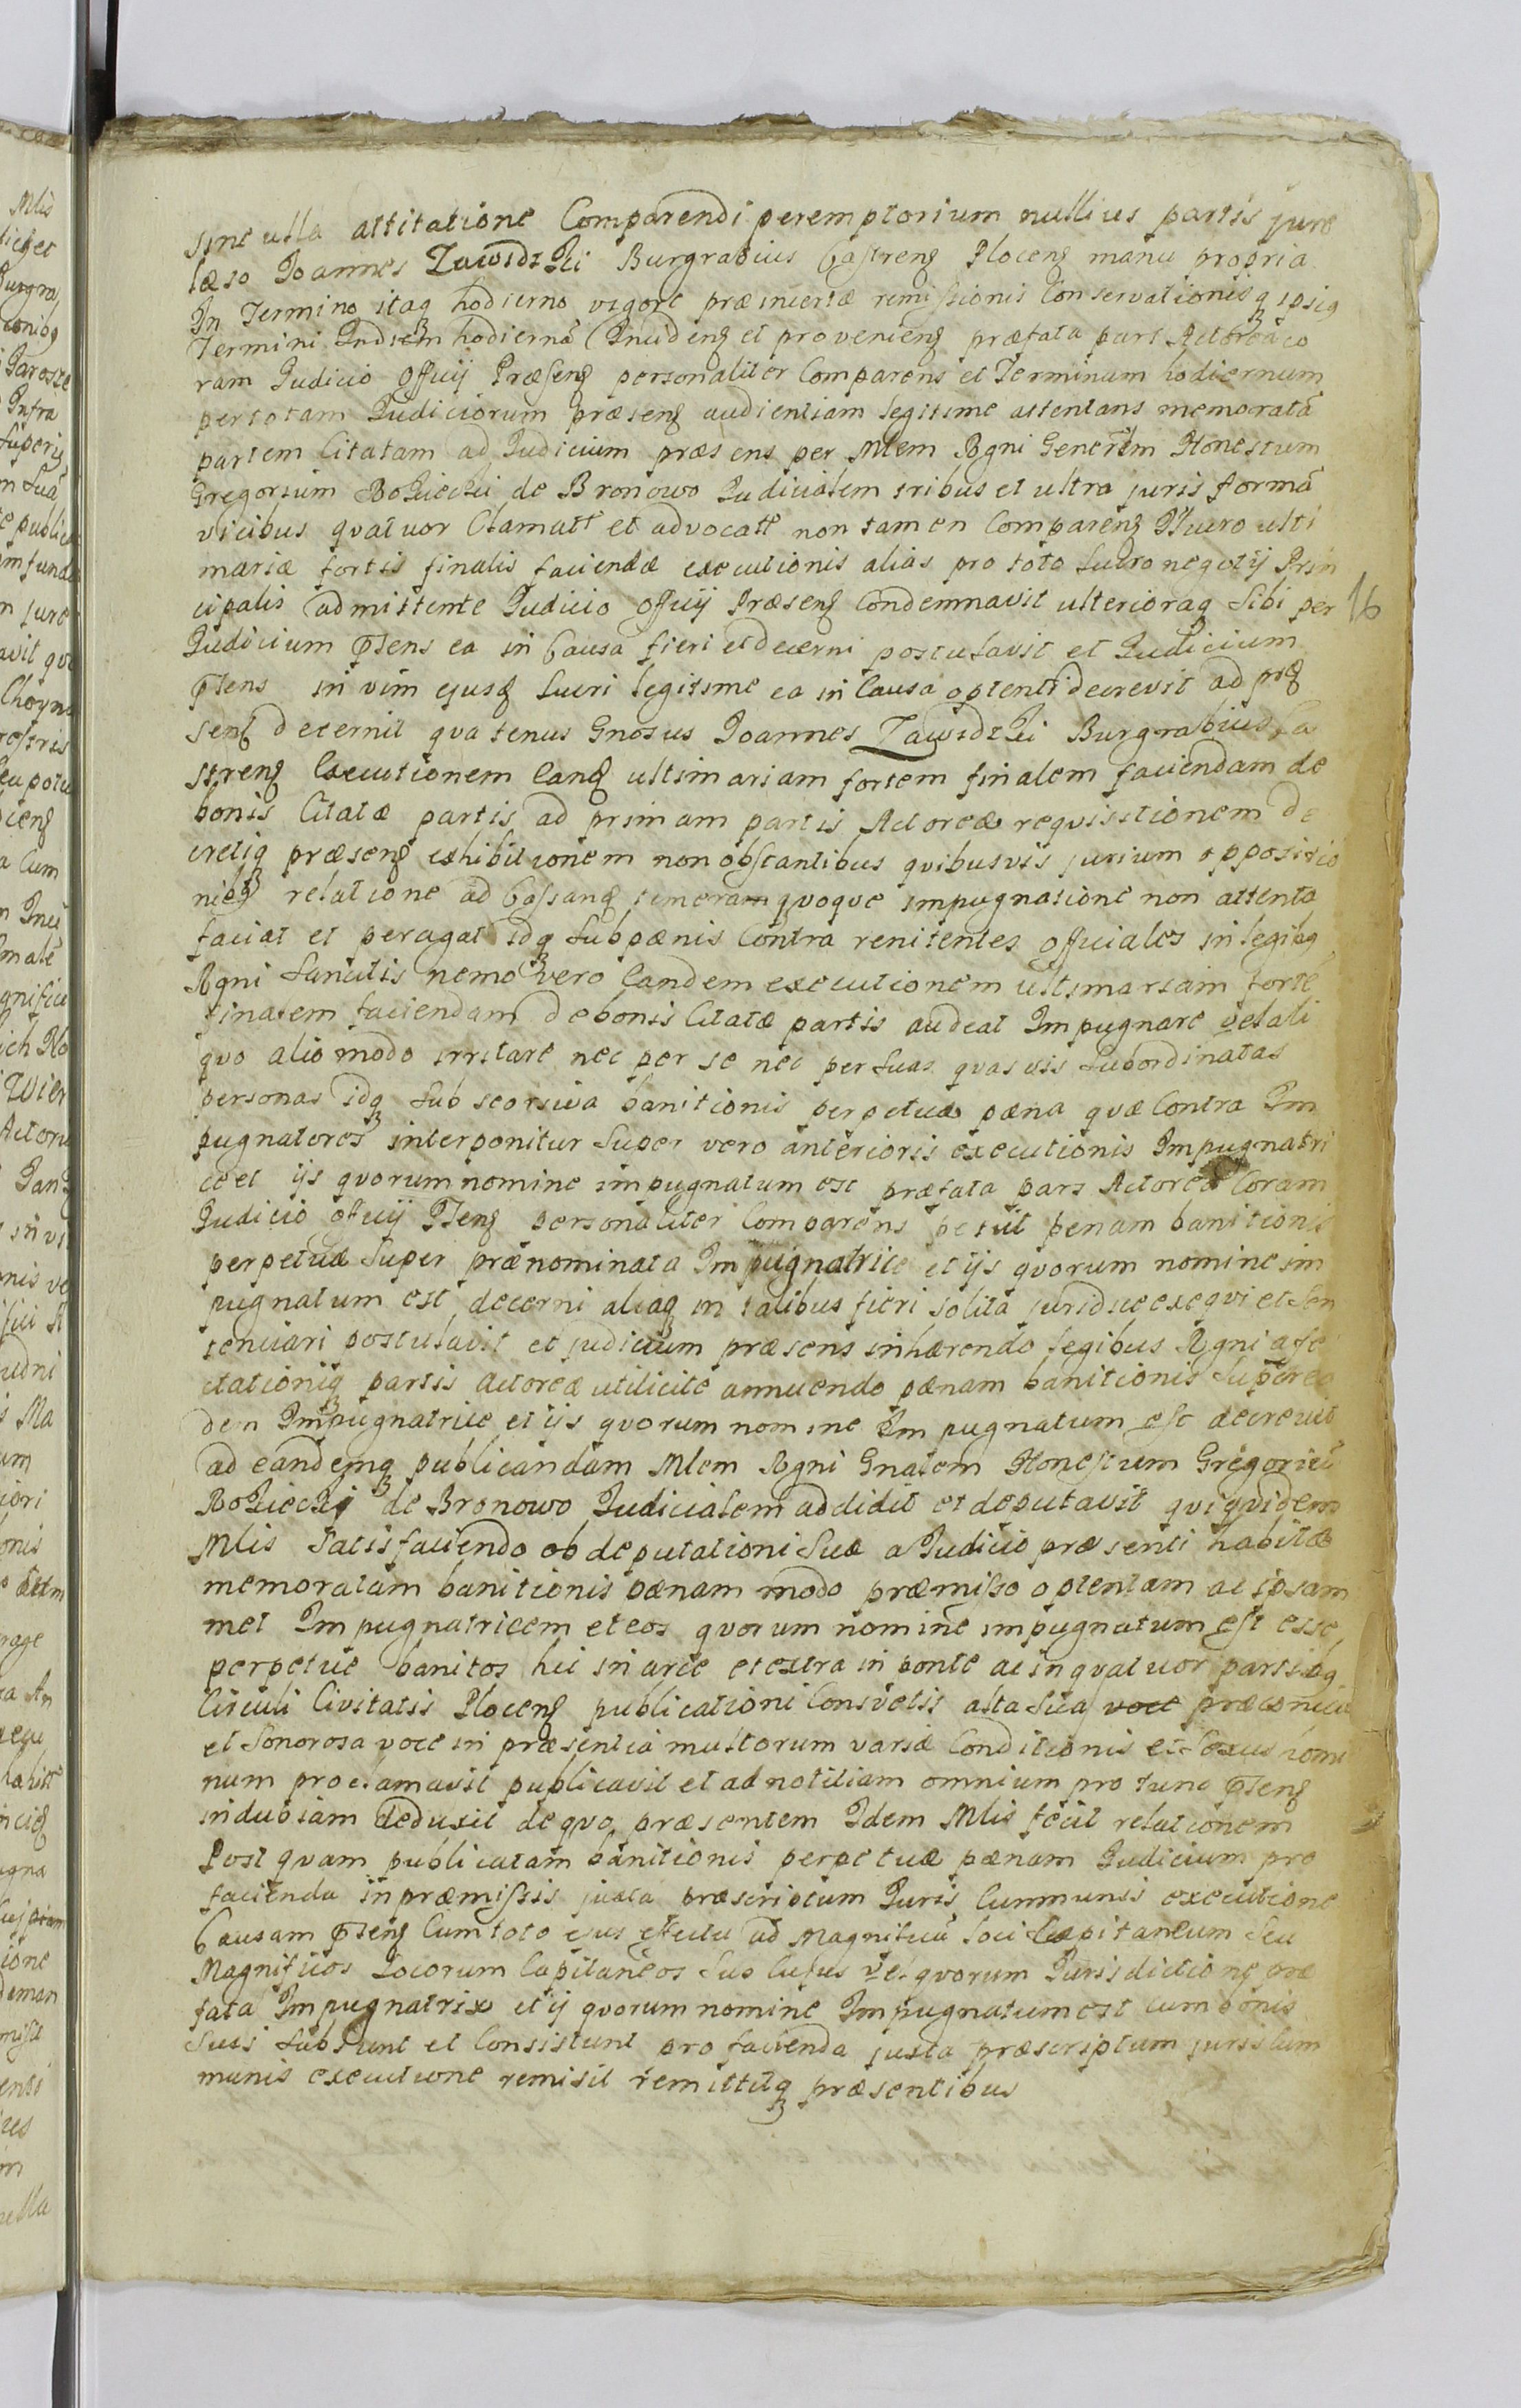 sine ulla attitatione Comparendi peremptorium nullius partis jure
læso Joannes Zawidzki Burgrabius Castrenꝫ Plocenꝫ manu propria
In Termino itaqꝫ hodierno vigore præinsertæ remissionis Conservationisqꝫ ipsiꝯ
Termini Indiem hodiernã Incidenꝫ et provenienꝫ præfata pars Actorea co
ram Judicio Officij Præsenꝫ personaliter Comparens et Terminum hodiernum
per totam Judiciorum præsenꝫ audientiam legitime attentans memoratã
partem Citatam ad Judicium præsens per Mlem Rgni Generlem Honestum
Gregorium Bozieczki de Bronowo Judicialem tribus et ultra juris formã
vicibus quatuor Clamatt et advocatt non tamen Comparenꝫ In lucro ulti
mariæ fortis finalis faciendæ executionis alias pro toto lucro negotij Prin
cipalis admittente Judicio Officij Præsenꝫ Condemnavit ulterioraqꝫ sibi per 16
Judicium Pñens ea in Causa fieri et decerni postulavit et Judicium
Pñens in vim ejusꝫ lucri legitime ea in Causa optenti decrevit ad præ
senꝫ decernit quatenus Gnosus Joannes Zawidzki Burgrabius Ca
strenꝫ Executionem eanꝫ ultimariam fortem finalem faciendam de
bonis Citatæ partis ad primam partis Actoreæ requisitionem de
cretiqꝫ præsenꝫ exhibitionem non obstantibus quibusvis jurium oppositio
nibꝫ relatione ad Cassanꝫ temeram quoque impugnatione non attenta
faciat et peragat idqꝫ sub pænis Contra renitentes officiales in legibꝫ
Rgni sancitis nemo vero eandem executionem ultimariam forte
finalem faciendam de bonis Citatæ partis audeat Impugnare vel ali
quo alio modo irritare nec per se nec per suas quasvis subordinatas
personas idqꝫ sub seorsiva banitionis perpetuæ pæna quæ Contra Im
pugnatores interponitur super vero anterioris executionis Impugnatri
ce et ijs quorum nomine impugnatum est præfata pars Actorea Coram
Judicio officij Pñenꝫ personaliter Comparens petiit penam banitionis
perpetuæ super prænominata Impugnatrice et ijs quorum nomine im
pugnatum est decerni aliaqꝫ in talibus fieri solita juridice exequi et sen
tenciari postulavit et judicium præsens inhærendo legibus Rgni affe
ctationiqꝫ partis actoreæ utilicite annuendo pænam banitionis super ea
dem Impugnatrice et ijs quorum nomine Impugnatum est decrevit
ad eandemqꝫ publicandam Mlem Rgni Gnalem Honestum Gregoriũ
Bozieczki de Bronowo Judicialem addidit et deputavit qui quidem
Mlis satisfaciendo ob deputationi suæ a Judicio præsenti habitæ
memoratam banitionis pænam modo præmisso optentam ac ipsam
met Impugnatricem et eos quorum nomine impugnatum est esse
perpetue banitos hic in arce et extra in ponte ac in quatuor partibꝫ
Circuli Civitatis Plocenꝫ publicationi Consvetis alta sua voce præconica
et Sonorosa voce in præsentia multorum variæ Conditionis et sexus homi
num proclamavit publicavit et ad notitiam omnium pro tunc Pñenꝫ
indubiam deduxit de quo præsentem Idem Mlis fecit relationem
Post quam publicatam banitionis perpetuæ pænam Judicium pro
facienda in præmissis juxta præscriptum Juris Cummunis executione
Causam Pñenꝫ Cum toto ejus effectu ad Magnificũ loci Capitaneum seu
Magnificos Locorum Capitaneos sub Cujus vel quorum Jurisdictione præ
fata Impugnatrix et ij quorum nomine Impugnatum est cum bonis
suis subsunt et Consistunt pro facienda juxta præscriptum juris Cum
munis executione remisit remittitqꝫ præsentibus